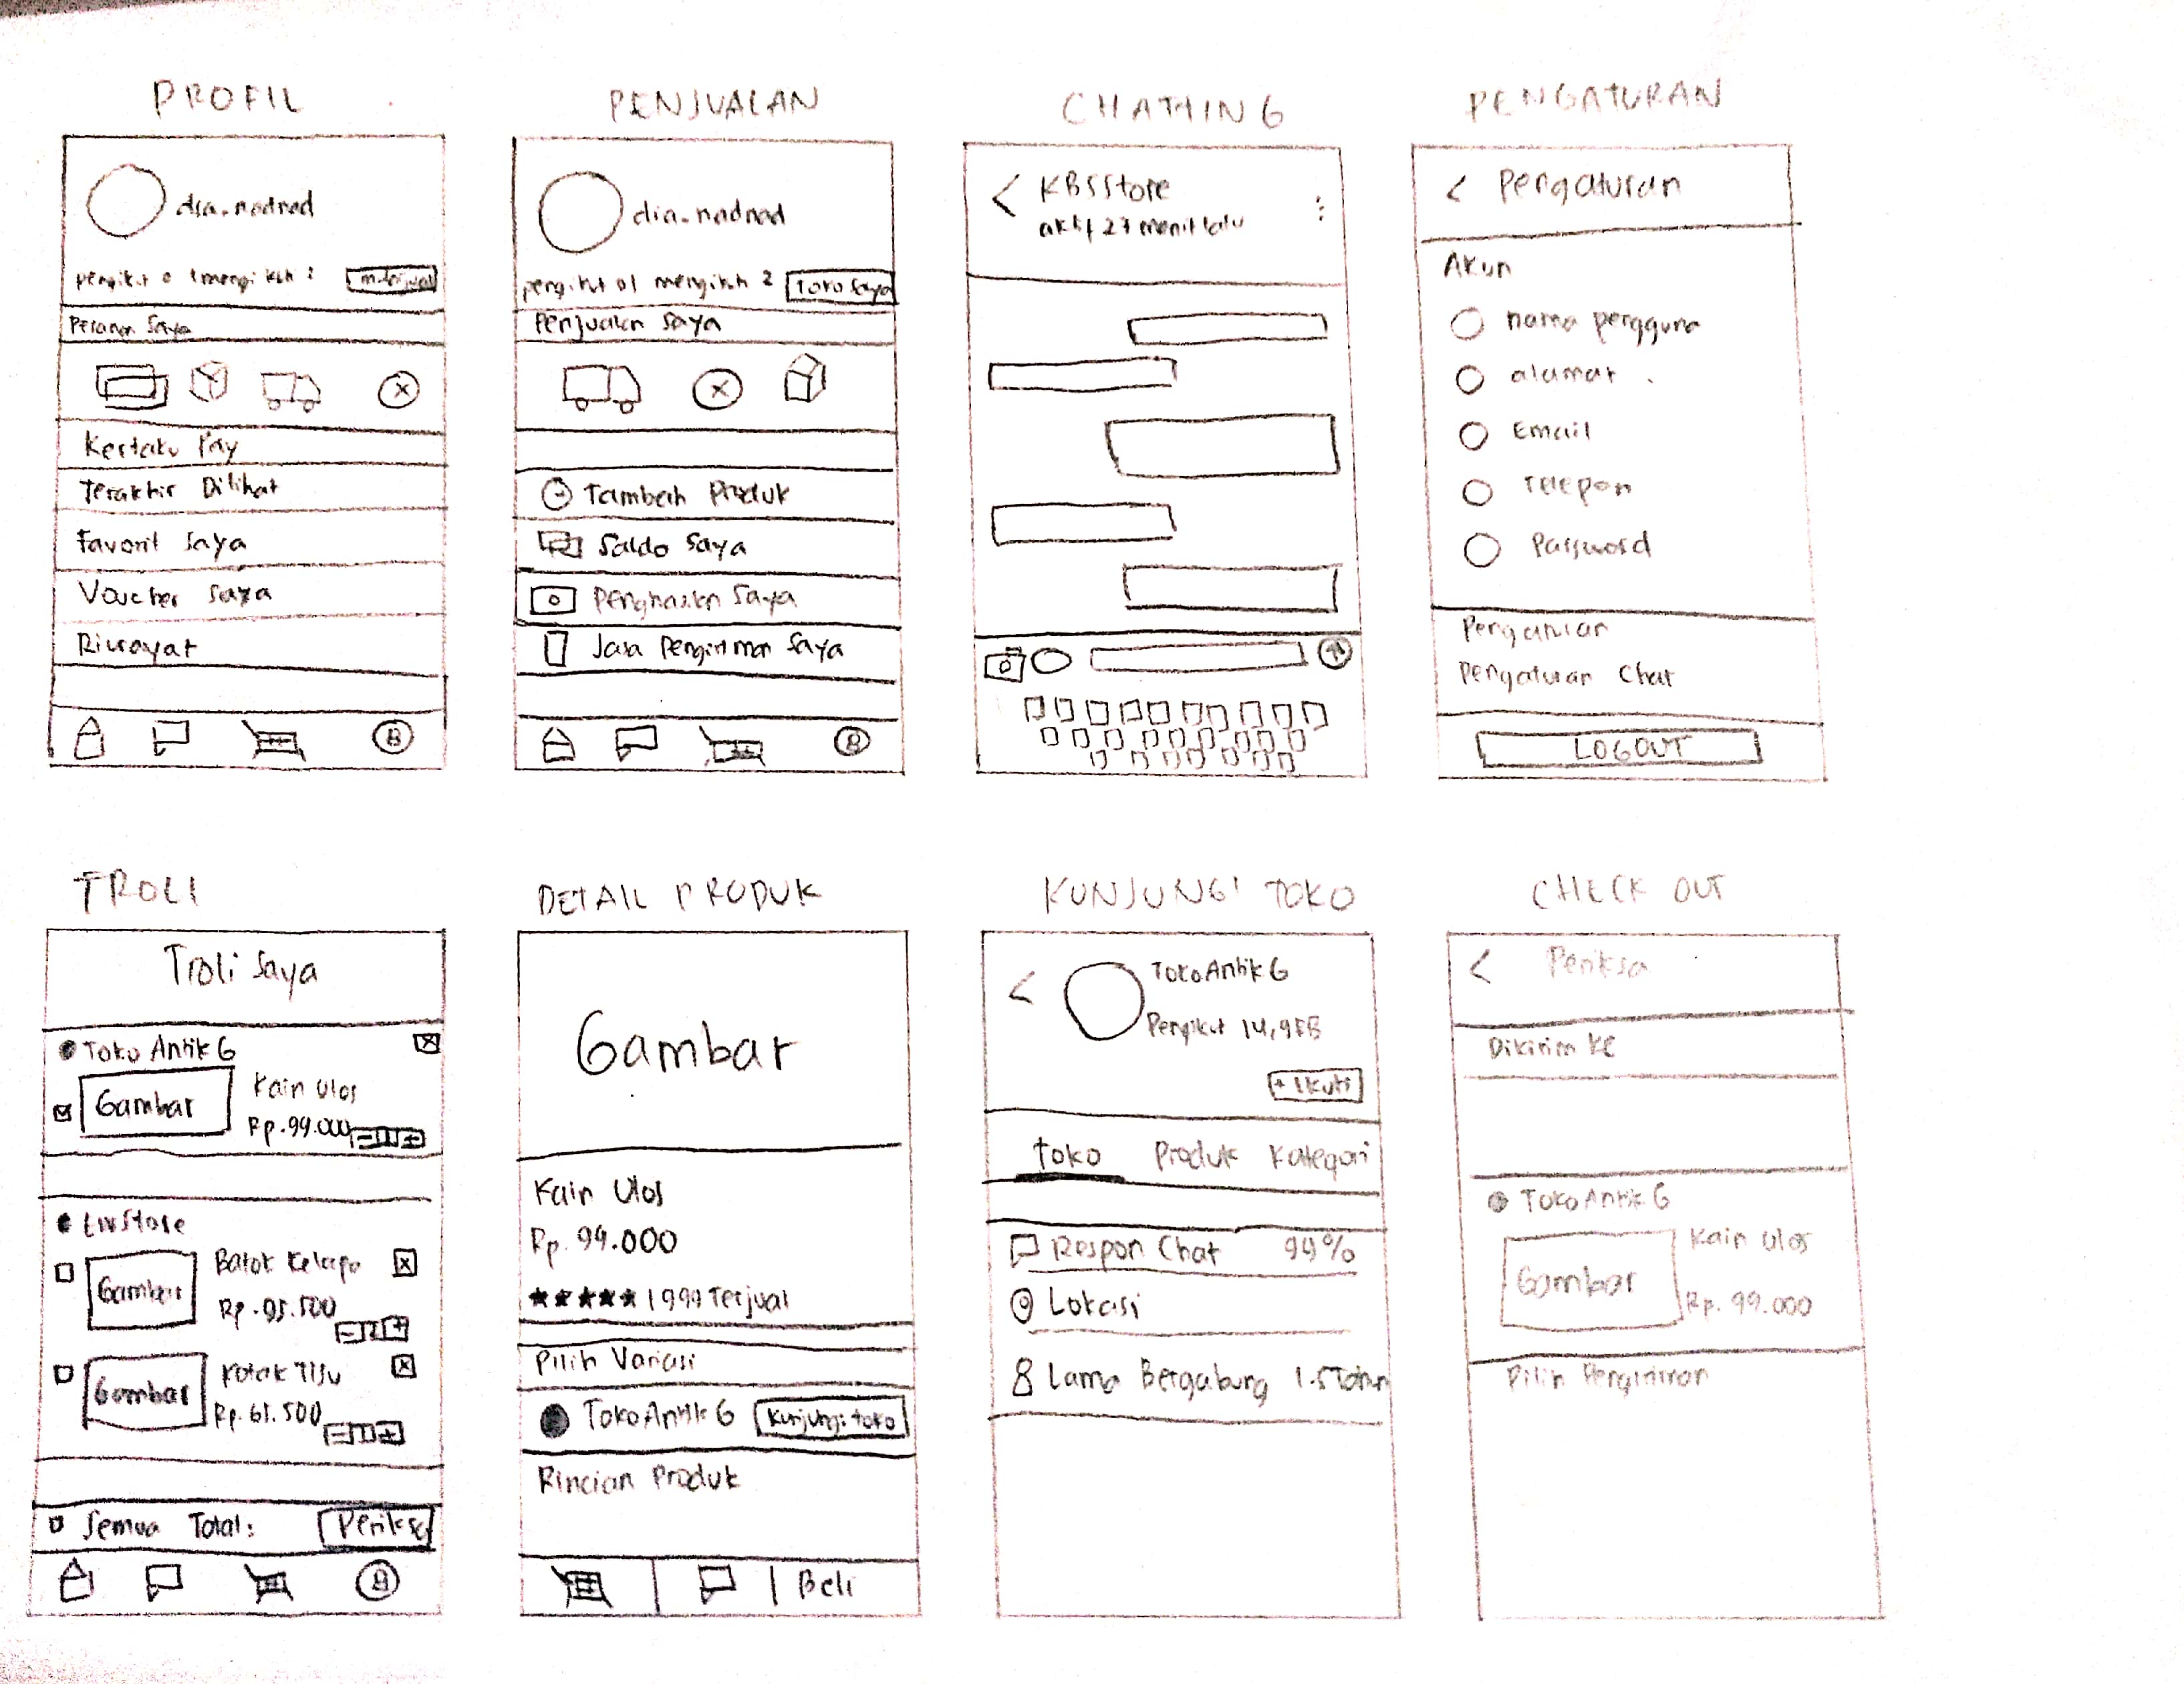 PROFIL
dia.nadnad
pengikut 0 mengikuti 2
Pesanan Saya
Kertaku Pay
Terakhir Dilihat
Favorit Saya
Voucher Saya
Riwayat
PENJUALAN
dia.nadnad
pengikut 0 | mengikuti 2 Toko Saya
Penjualan Saya
Tambah Produk
Saldo Saya
Penghasilan Saya
Jasa Pengiriman Saya
CHATTING
< KBSStore
aktif 27 menit lalu
PENGATURAN
< Pengaturan
Akun
nama pengguna
alamat
Email
Telepon
Password
Pengaturan Chat
LOGOUT
TROLI
Troli Saya
Toko Antik G
Gambar
Kain Ulos
Rp. 99.000
- 1 +
Gambar
Batok Kelapa
- 1 +
Gambar
Kotak Tisu
Rp. 61.500
- 1 +
Semua Total: Periksa
DETAIL PRODUK
Gambar
Kain Ulos
Rp. 99.000
★★★★★ | 999 Terjual
Pilih Variasi
Toko Antik G Kunjungi toko
Rincian Produk
Beli
KUNJUNGI TOKO
<
Toko Antik G
Pengikut
+ Ikuti
Toko Produk Kategori
Respon Chat 99%
Lokasi
Lama Bergabung 1.5 Tahun
CHECK OUT
< Periksa
Dikirim Ke
Toko Antik G
Gambar
Kain Ulos
Rp. 99.000
Pilih Pengiriman